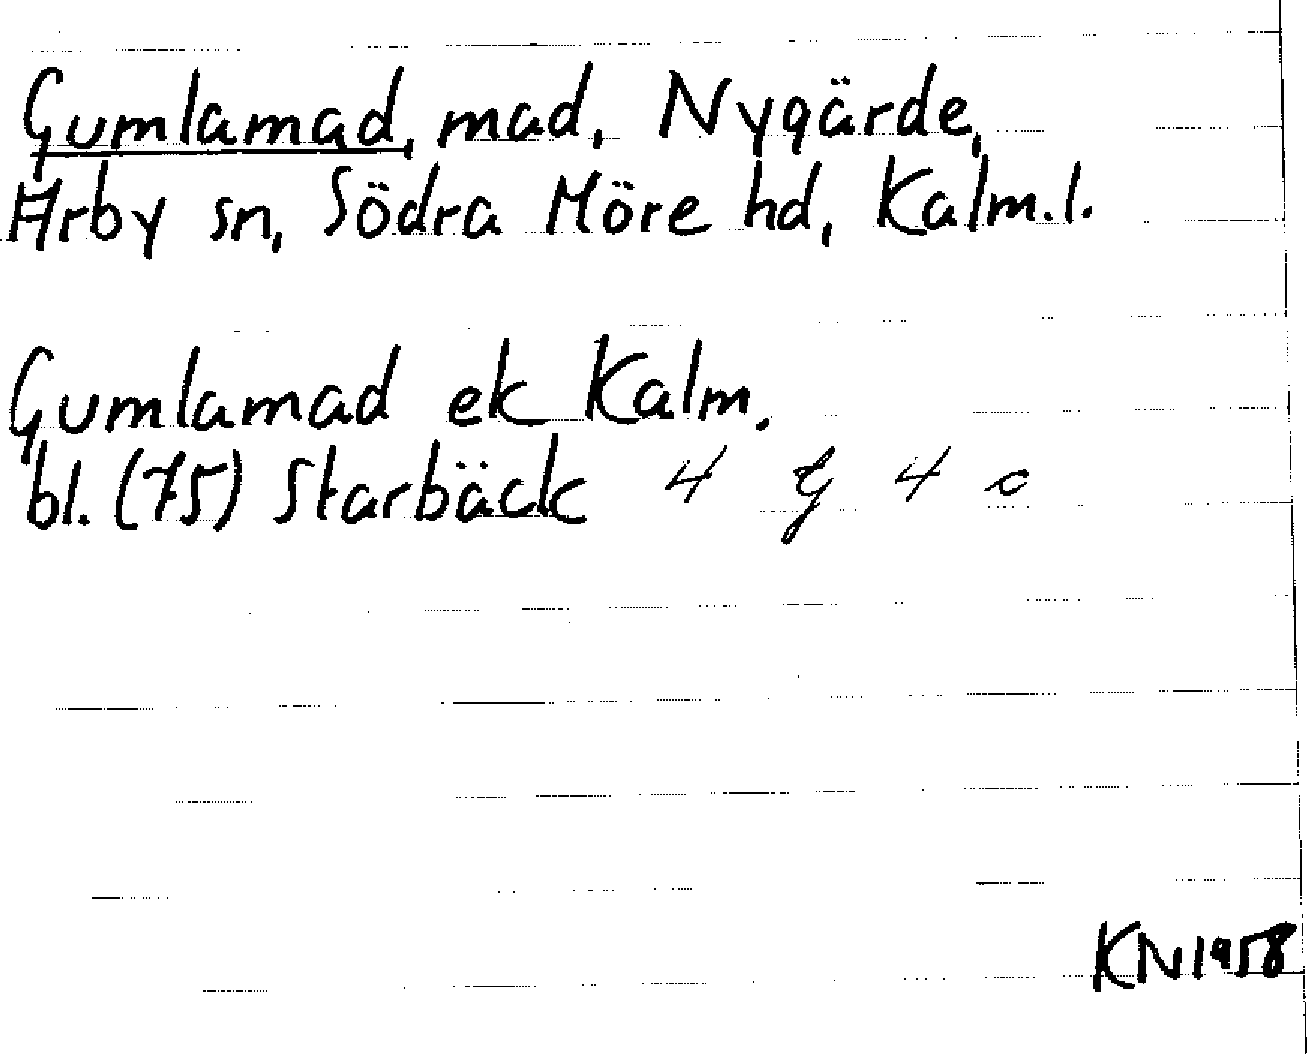 Gumlamad, mad, Nygärde,
Arby sn, Södra Möre hd, Kalm.l.
Gumlamad ek Kalm.
bl. (75) Starbäck 4 G 4 c
KN1958